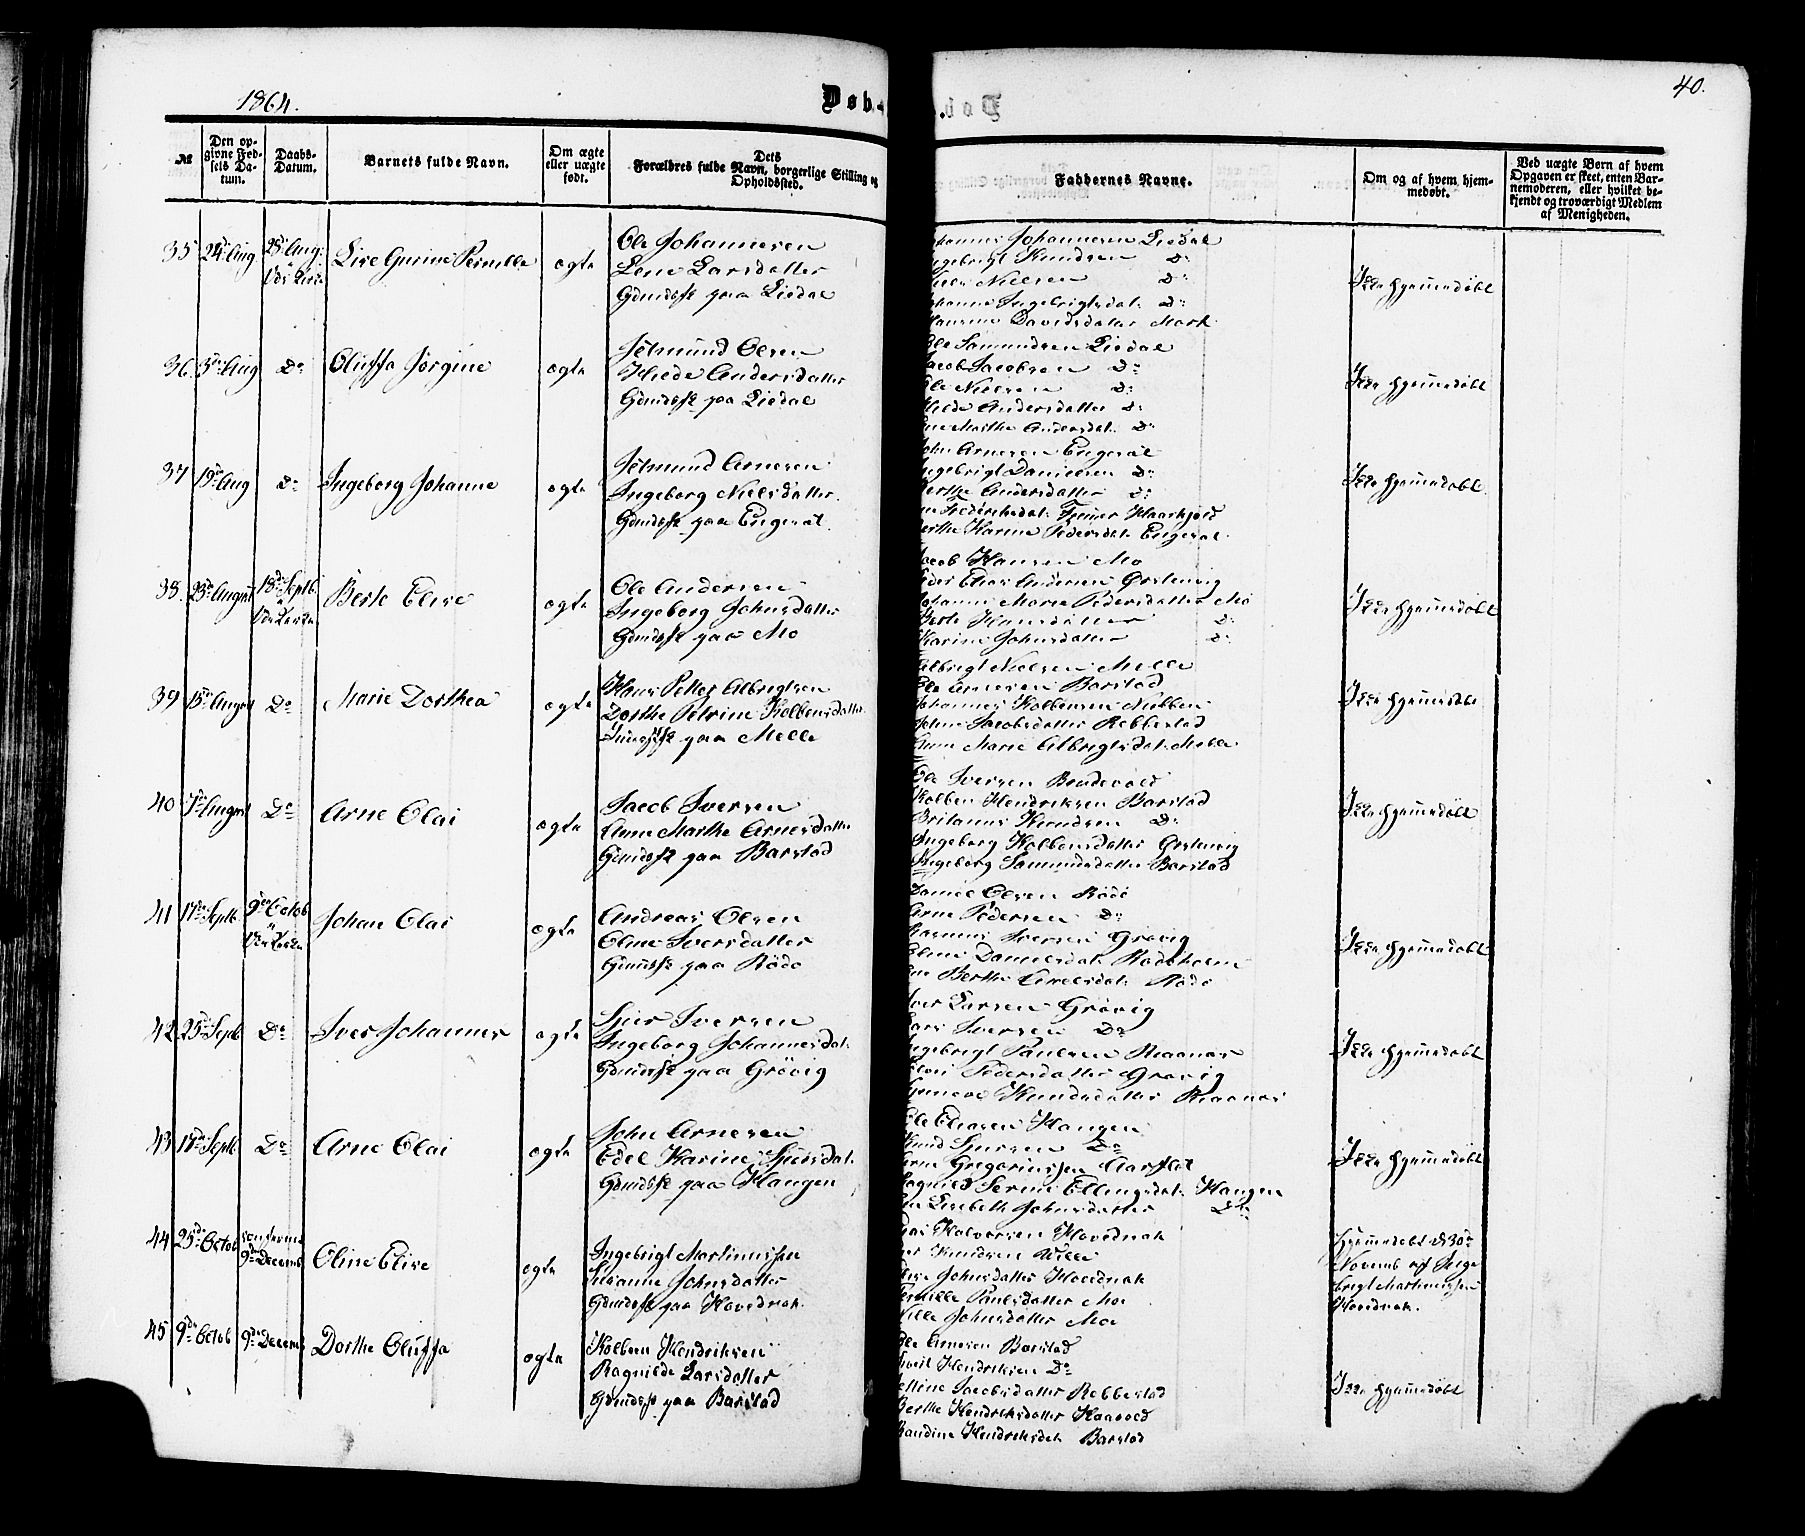 1864.
Døb
40.
№
Den op-
givne Fød-
sels Da-
tum.
Daabs-
Datum.
Barnets fulde Navn.
Om ægte
eller uægte
født.
Dets
Forældres fulde Navn, borgerlige Stilling og
Opholdssted.
Faddernes Navne.
Om og af hvem hjem-
medøbt.
Ved uægte Børn af hvem
Opgaven er skeet, enten Bar-
nemoderen, eller hvilket be-
kjendt og troværdigt Medlem
af Menigheden.
35 24de Aug
Lise Gurine Pernille
ægte
Ole Johannesen
Lene Larsdatter
Gdmdsfk paa Liedal
Johannesen Liedal
Knudsen Do
Nielsen Do
Ingebrigtsdat. Do
Davidsdatter Mork
Ikke hjemmedøbt
36 Aug Do Oluffa Jørgine
ægte
Jetmund Olsen
Hilde Andersdatter
Gdmdsfk paa Liedal
Ole Samundsen Liedal
Jacob Jacobsen Do
Ole Nielsen Do
Hilde Andersdatter Do
Marthe Andersdat. Do
Ikke hjemmedøbt
37 19de Aug Do Ingeborg Johanne
ægte
Jetmund Arnesen
Ingeborg Nielsdatter
Gdmdsfk paa Engeset
John Arnesen Engeset
Ingebrigt Danielsen Do
Berthe Andersdatter Do
Berthe Karine Pedersdat. Engeset
Ikke hjemmedøbt
38. 23de August 18de Septb.
Berte Elise
ægte
Ole Andersen
Ingeborg Johnsdatter
Gdmdsfk paa Mo
Jacob Hansen Mo
Peder Elias Andersen Ørstenvig
Johanne Marie Pedersdatter Mo
Berte Do
Karine Johnsdatter Do
Ikke hjemmedøbt
39 18de August Do Marie Dorthea
ægte
Hans Petter Albrigtsen
Dorthe Petrine Kolbensdatter
paa Melle
Albrigt Nielsen Melle
Ole Arnesen Barstad
Johannes Kolbensen Nubben
Jacobsdatter Rebbestad
Anne Marie Albrigtsdat. Melle
Ikke hjemmedøbt
40 7de August Do Arne Olai
ægte
Jacob Iversen
Anne Marthe Arnesdatter
Gdmdsfk paa Barstad
Ole Iversen Brudevold
Kolben Hendriksen Barstad
Britanus Knudsen Do
Ingeborg Kolbensdatter Ørstenvig
Ingeborg Samundsdatter Barstad
Ikke hjemmedøbt
41 17de Septb. 9de Octob
Johan Olai
ægte
Andreas Olsen
Oline Iversdatter
Gdmdsfk paa Rødø
Daniel Olsen Rødø
Arne Pedersen Do
Rasmus Iversen Grøvig
Eline Danielsdat. Rødsholm
Berthe Rødø
Ikke hjemmedøbt
42 25de Septb Do Iver Johannes
ægte
Sjur Iversen
Ingeborg Johannesdat.
Gdmdsfk paa Grøvig
Iver Larsen Grøvig
Lars Iversen Do
Ingebrigt Paulsen Raanæs
Pedersdatter Grøvig
Knudsdatter Raanæs
Ikke hjemmedøbt
43 17de Septb Do Arne Olai
ægte
John Arnesen
Edel Karine Sjursdat.
Gdmdsfk paa Haugen
Ole Eliasen Haugen
Knud Sjursen Do
Arne Gregoriussen Aarflot
Ragnild Serine Ellingsdat. Haugen
Lisebeth Johnsdatter Do
Ikke hjemmedøbt
44 25de Octob
9de Decemb
Oline Elise
ægte
Ingebrigt Martinussen
Susanne Johnsdatter
Gdmdsfk paa Hovednak.
Halvorsen Hovednak
Knudsen Velle
Johnsdatter Hovednak
Pernille Paulsdatter Mo
Nille Johnsdatter Mo
Hjemmedøbt d 30te
Novemb af Inge-
brigt Martinussen
Hovednak.
45 9de Octob 9de Decemb Dorthe Oluffa
ægte
Kolben Hendriksen
Ragnilde Larsdatter
Gdmdsfk paa Barstad
Ole Arnesen Barstad
Hendriksen Do
Jacobsdatter Rebbestad
Berthe Hendriksdatter Haavold
Hendriksdat. Barstad
Ikke hjemmedøbt